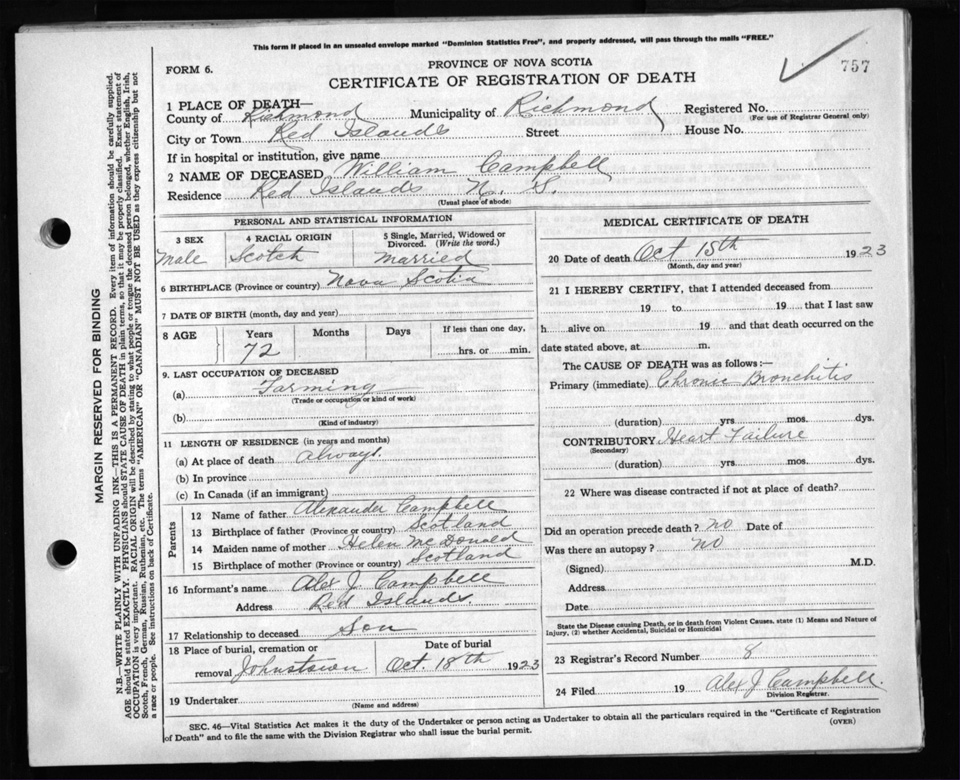 This form if placed in an unsealed envelope marked "Dominion Statistics Free", and properly addressed, will pass through the mails "FREE."
757
FORM 6.
PROVINCE OF NOVA SCOTIA
CERTIFICATE OF REGISTRATION OF DEATH
1 PLACE OF DEATH—
County of Richmond Municipality of Richmond Registered No.
(For use of Registrar General only)
City or Town Red Islands Street House No.
If in hospital or institution, give name
2 NAME OF DECEASED William Campbell
Residence Red Islands N. S.
(Usual place of abode)
PERSONAL AND STATISTICAL INFORMATION
3 SEX
Male
4 RACIAL ORIGIN
Scotch
5 Single, Married, Widowed or
Divorced. (Write the word.)
Married
6 BIRTHPLACE (Province or country) Nova Scotia
7 DATE OF BIRTH (month, day and year)
8 AGE Years Months Days If less than one day,
72 hrs. or min.
9. LAST OCCUPATION OF DECEASED
(a) Farming
(Trade or occupation or kind of work)
(b)
(Kind of industry)
11 LENGTH OF RESIDENCE (in years and months)
(a) At place of death always.
(b) In province
(c) In Canada (if an immigrant)
Parents
12 Name of father Alexander Campbell
13 Birthplace of father (Province or country) Scotland
14 Maiden name of mother Helen McDonald
15 Birthplace of mother (Province or country) Scotland
16 Informant's name Alex J. Campbell
Address Red Islands.
17 Relationship to deceased Son
18 Place of burial, cremation or
removal Johnstown
Date of burial
Oct. 18th 1923
19 Undertaker
(Name and address)
MEDICAL CERTIFICATE OF DEATH
20 Date of death Oct 15th 1923
(Month, day and year)
21 I HEREBY CERTIFY, that I attended deceased from
19 to 19 that I last saw
h alive on 19 and that death occurred on the
date stated above, at m.
The CAUSE OF DEATH was as follows:—
Primary (immediate) Chronic Bronchitis
(duration) yrs. mos. dys.
CONTRIBUTORY Heart Failure
(Secondary)
(duration) yrs. mos. dys.
22 Where was disease contracted if not at place of death?
Did an operation precede death? no Date of
Was there an autopsy? no
(Signed) M.D.
Address
Date
State the Disease causing Death, or in death from Violent Causes, state (1) Means and Nature of
Injury, (2) whether Accidental, Suicidal or Homicidal
23 Registrar's Record Number 8
24 Filed 19 Alex J Campbell.
Division Registrar.
SEC. 46—Vital Statistics Act makes it the duty of the Undertaker or person acting as Undertaker to obtain all the particulars required in the "Certificate of Registration
of Death" and to file the same with the Division Registrar who shall issue the burial permit.
(OVER)
MARGIN RESERVED FOR BINDING
N.B.—WRITE PLAINLY WITH UNFADING INK—THIS IS A PERMANENT RECORD. Every item of information should be carefully supplied.
AGE should be stated EXACTLY. PHYSICIANS should STATE CAUSE OF DEATH in plain terms, so that it may be properly classified. Exact statement of
OCCUPATION is very important. RACIAL ORIGIN will be described by stating to what people or tongue the deceased person belonged, whether English, Irish,
Scotch, French, German, Russian, Ruthenian, etc. The terms "AMERICAN" OR "CANADIAN" MUST NOT BE USED as they express citizenship but not
a race or people. See instructions on back of Certificate.